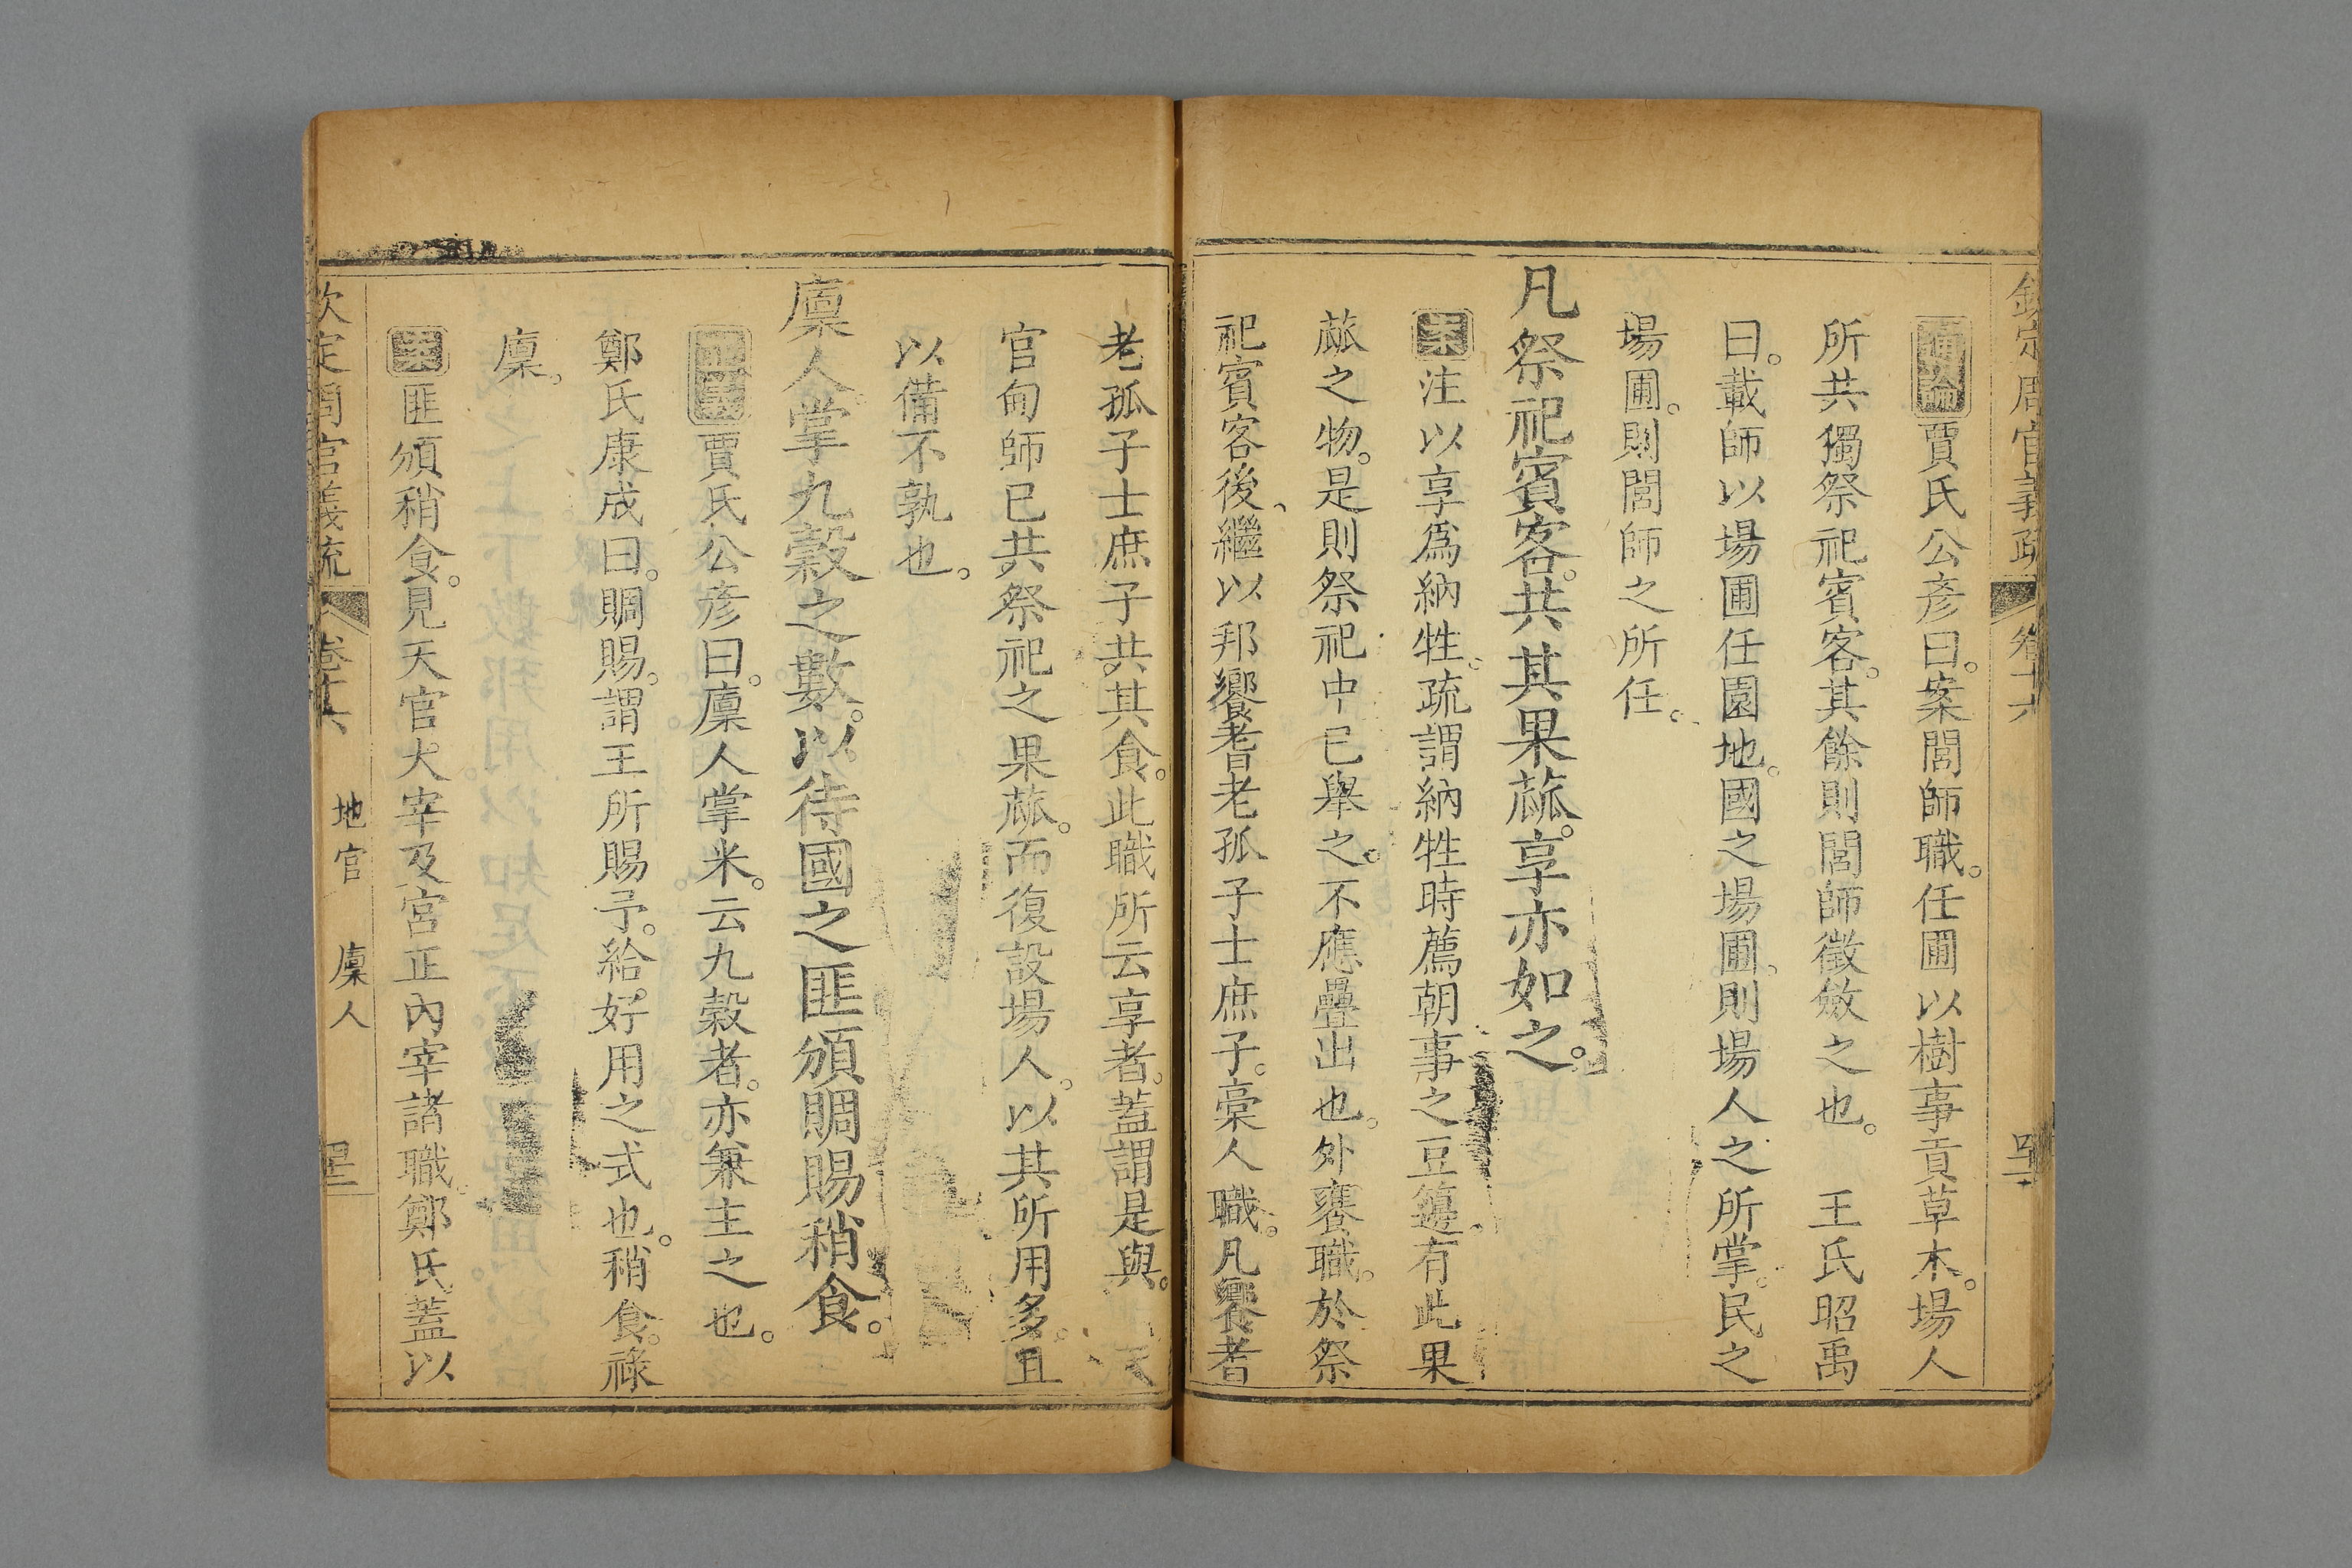 通論賈氏公彥曰。案閭師職。任圃以樹事貢草木。場人
所共獨祭祀賓客。其餘則閭師徵斂之也。 王氏昭禹
曰。載師以場圃任園地。國之場圃。則場人之所掌。民之
場圃。則閭師之所任。
凡祭祀賓客。共其果蓏。享亦如之。
案注以享爲納牲。疏謂納牲時薦朝事之豆籩。有此果
蓏之物。是則祭祀中已舉之。不應疊出也。外饔職。於祭
祀賓客後、繼以邦饗耆老孤子士庶子。槀人職。凡饗耆
老孤子士庶子共其食。此職所云享者。蓋謂是與。
官甸師已共祭祀之果蓏。而復設場人。以其所用多。且
以備不孰也。
廩人掌九穀之數。以待國之匪頒賙賜稍食。
正義賈氏公彥曰。廩人掌米。云九穀者。亦兼主之也。
鄭氏康成曰。賙賜。謂王所賜予。給好用之式也。稍食。祿
廩。
案匪頒稍食。見天官大宰及宮正內宰諸職。鄭氏蓋以
欽定周官義疏 卷十六 地官 廩人